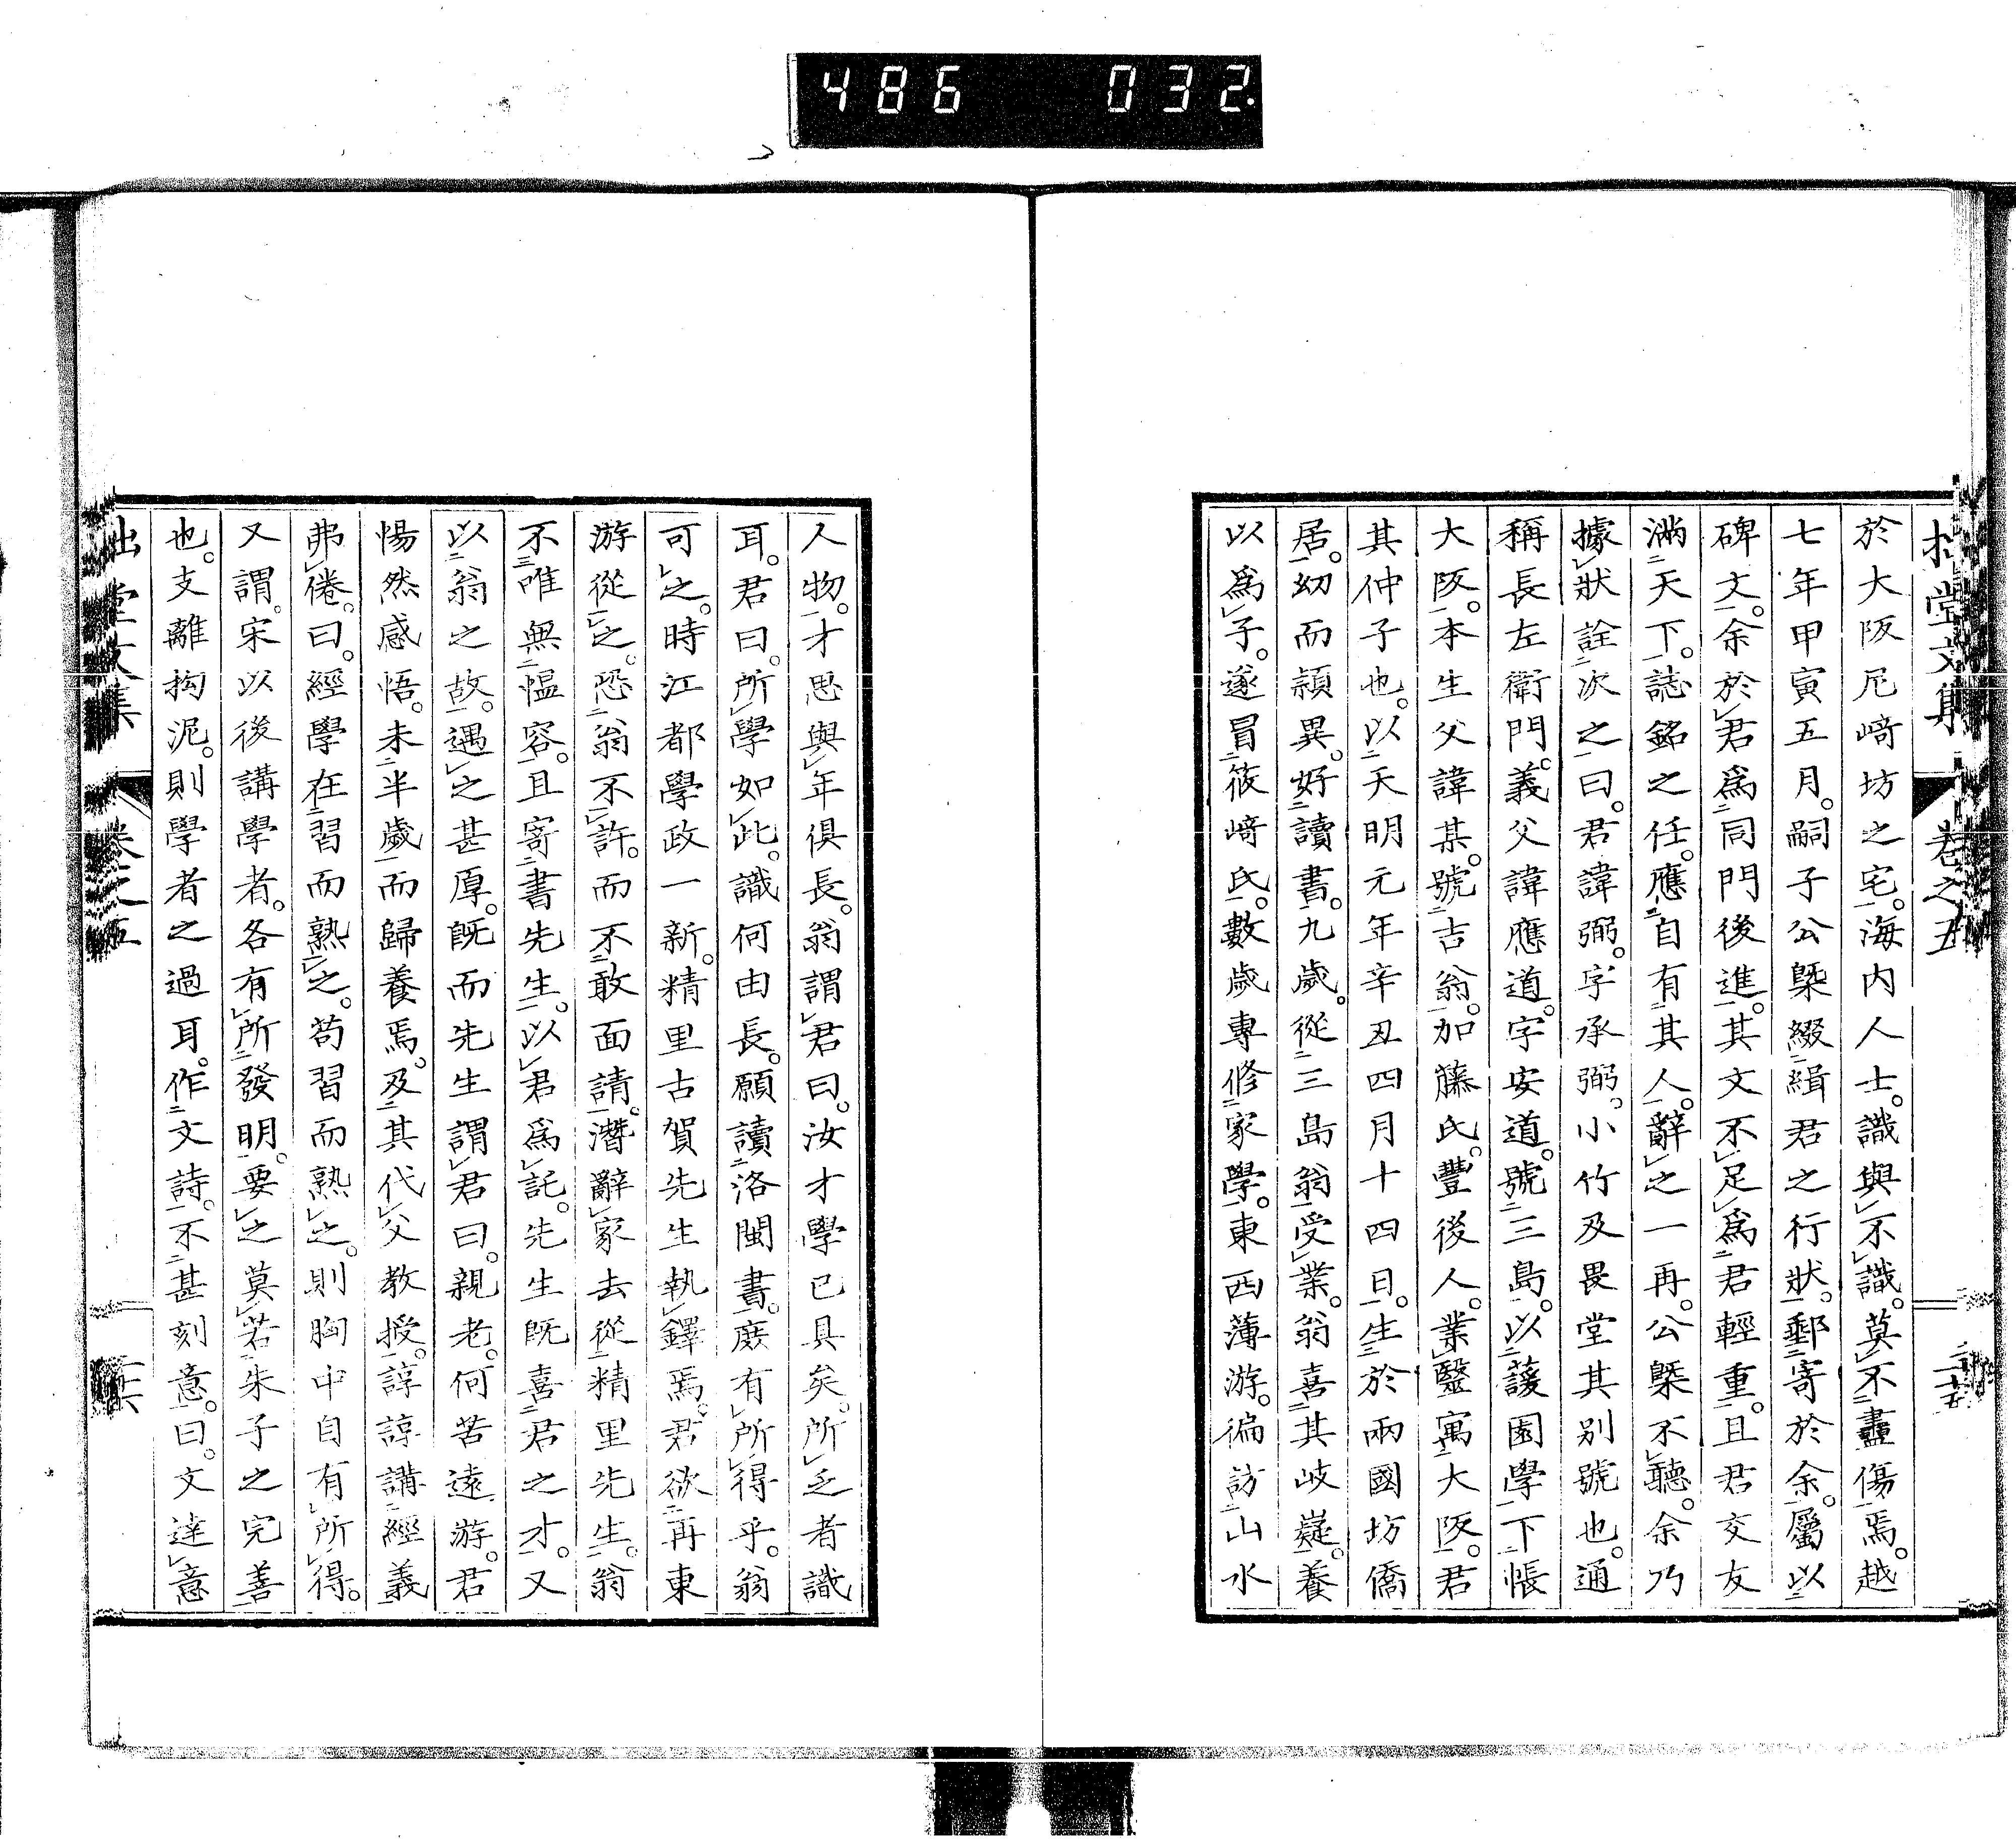 486 032.
於大阪尼﨑坊之宅。海内人士。識與不識。莫不盡傷焉。越
七年甲寅五月。嗣子公槩綴緝君之行狀。郵寄於余。屬以
碑文。余於君爲同門後進。其文不足爲君輕重。且君交友
滿天下。誌銘之任。應自有其人。辭之一再。公槩不聽。余乃
據狀詮次之曰。君諱弼。字承弼。小竹及畏堂其别號也。通
稱長左衛門。義父諱應道。字安道。號三島。以蘐園學下帳
大阪。本生父諱某。號吉翁。加藤氏。豐後人。業醫寓大阪。君
其仲子也。以天明元年辛丑四月十四日。生於兩國坊僑
居。幼而頴異。好讀書。九歳。從三島翁受業。翁喜其岐嶷。養
以爲子。遂冒筱﨑氏。數歳專修家學。東西薄游。徧訪山水
人物。才思與年倶長。翁謂君曰。汝才學已具矣。所乏者識
耳。君曰。所學如此。識何由長。願讀洛閩書。庶有所得乎。翁
可之。時江都學政一新。精里古賀先生執鐸焉。君欲再東
游從之。恐翁不許。而不敢面請。潛辭家去從精里先生。翁
不唯無慍容。且寄書先生。以君爲託。先生既喜君之才。又
以翁之故。遇之甚厚。既而先生謂君曰。親老。何苦遠游。君
惕然感悟。未半歳而歸養焉。及其代父教授。諄諄講經義
弗倦。曰。經學在習而熟之。苟習而熟之。則胸中自有所得。
又謂。宋以後講學者。各有所發明。要之莫若朱子之完善
也。支離拘泥。則學者之過耳。作文詩。不甚刻意。曰。文達意
堂文集 卷之五